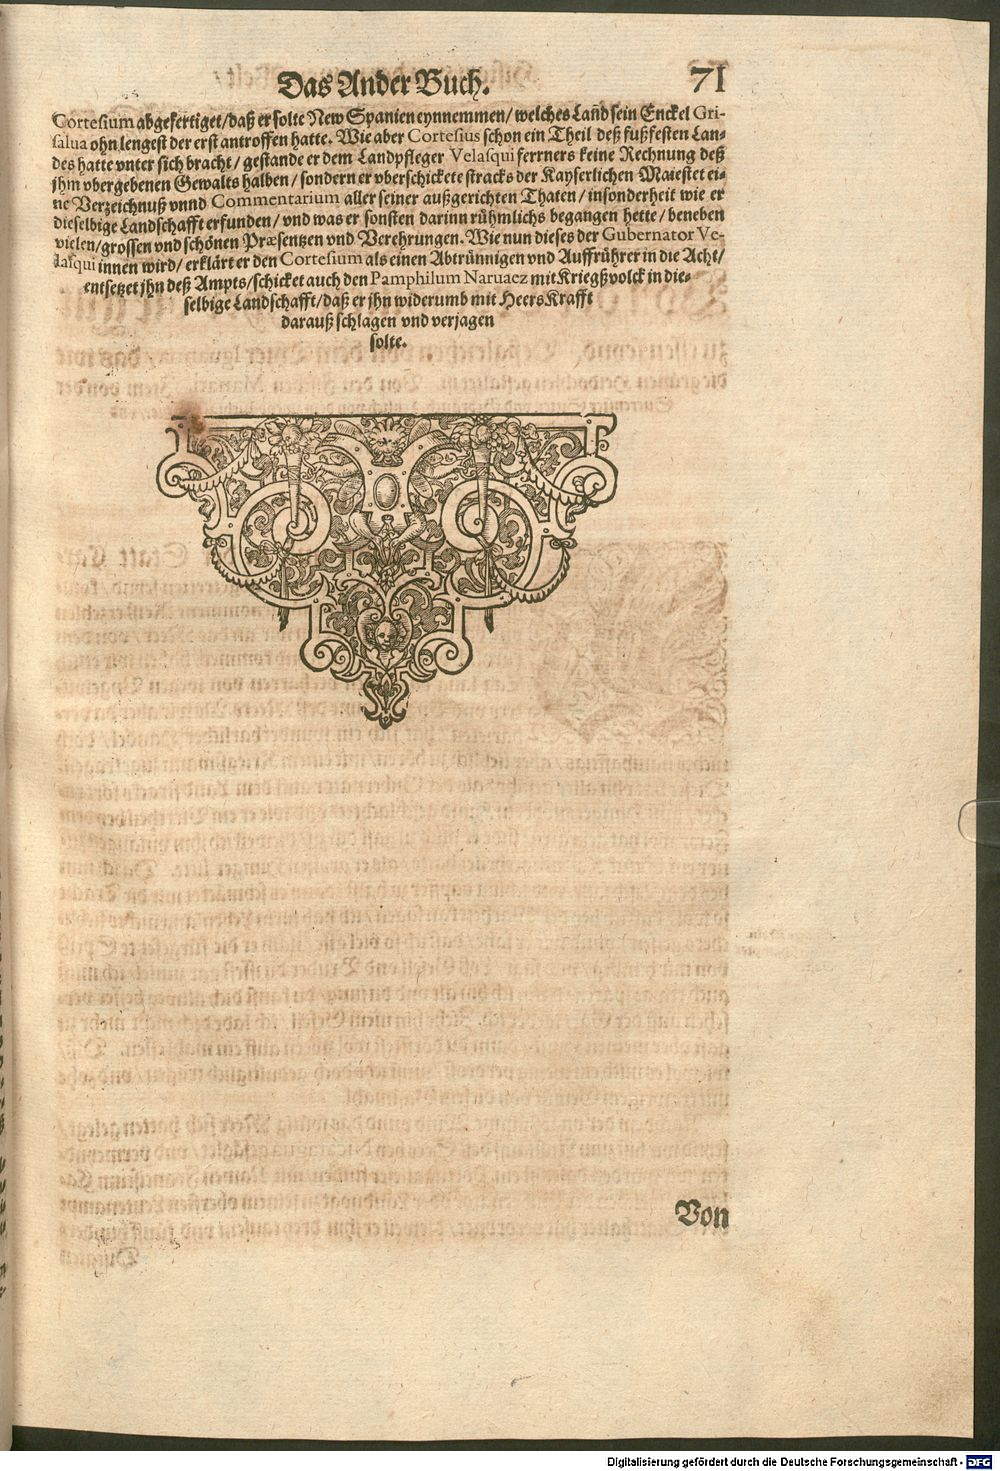 Das Ander Buch. 71
Cortesium abgefertiget/daß er solte New Spanien eynnemmen/welches Lañd sein Enckel Gri-
salua ohn lengest der erst antroffen hatte. Wie aber Cortesius schon ein Theil deß fußfesten Lan-
des hatte vnter sich bracht/ gestande er dem Landpfleger Velasqui ferrners keine Rechnung deß
jhm vbergebenen Gewalts halben/ sondern er vberschickete stracks der Kayserlichen Maiestet ei-
ne Verzeichnuß vnnd Commentarium aller seiner außgerichten Thaten/ insonderheit wie er
dieselbige Landschafft erfunden/ vnd was er sonsten darinn rühmlichs begangen hette/ beneben
vielen/grossen vnd schönen Præsentzen vnd Verehrungen. Wie nun dieses der Gubernator Ve-
lasqui innen wird/ erklärt er den Cortesium als einen Abtrünnigen vnd Auffrührer in die Acht/
entsetzet jhn deß Ampts/schicket auch den Pamphilum Naruaez mit Kriegßvolck in die-
selbige Landschafft/daß er jhn widerumb mit Heers Krafft
darauß schlagen vnd verjagen
solte.
Von
Digitalisierung gefördert durch die Deutsche Forschungsgemeinschaft - DFG